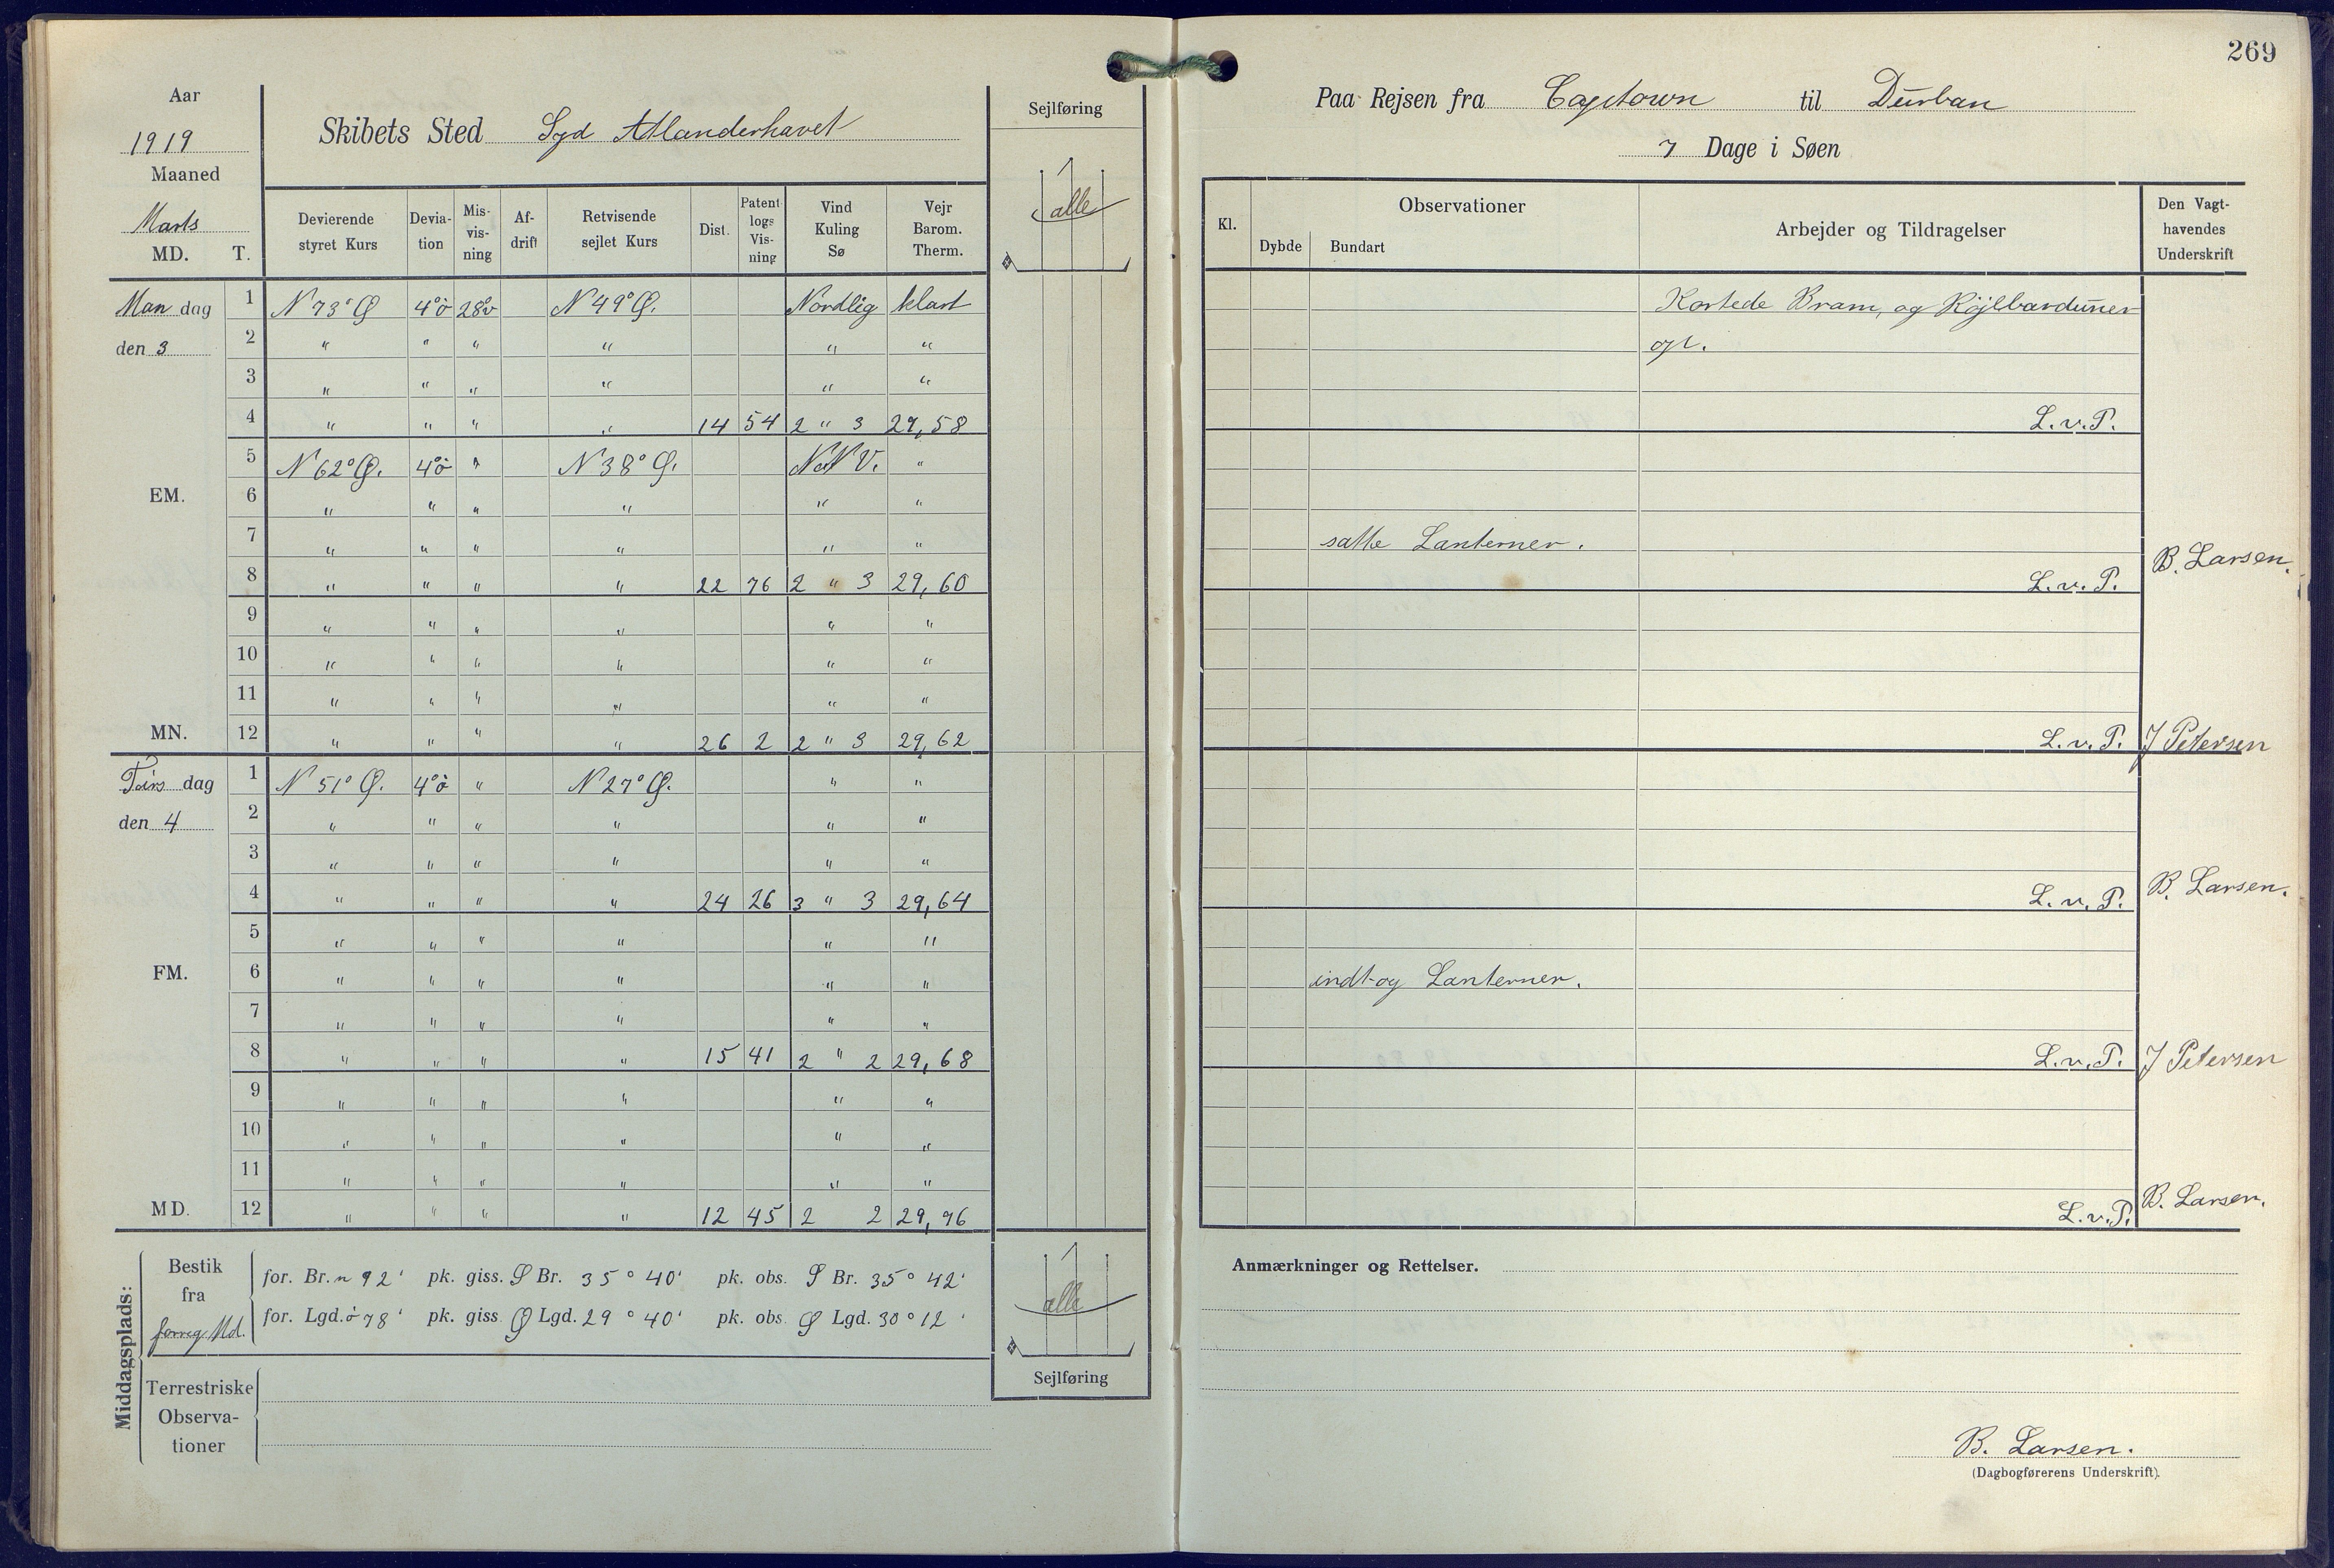 269
Aar
1919
Maaned
Marts
MD. T.
Skibets Sted Syd Atlanderhavet
Sejlføring
alle
Devierende styret Kurs | Deviation | Misvisning | Afdrift | Retvisende sejlet Kurs | Dist. | Patentlogs Visning | Vind Kuling Sø | Vejr Barom. Therm.
Mandag 1 N 73° Ø 4° ö 28° v N 49° Ø. Nordlig klart
den 3 2 " " " " " "
3 " " " " " "
4 " " " " 14 54 2 " 3 29,58
5 N 62° Ø. 4° ö " N 38° Ø. NNV. "
EM. 6 " " " " " "
7 " " " " " "
8 " " " " 22 76 2 " 3 29,60
9 " " " " " "
10 " " " " " "
11 " " " " " "
MN. 12 " " " " 26 2 2 " 3 29,62
Tirsdag 1 N 51° Ø. 4° ö " N 27° Ø. " "
den 4 2 " " " " " "
3 " " " " " "
4 " " " " 24 26 3 " 3 29,64
5 " " " " " "
FM. 6 " " " " " "
7 " " " " " "
8 " " " " 15 41 2 " 2 29,68
9 " " " " " "
10 " " " " " "
11 " " " " " "
MD. 12 " " " " 12 45 2 2 29,96
Middagsplads:
Bestik fra forrig Md.
for. Br. n 92' pk. giss. S Br. 35° 40' pk. obs. S Br. 35° 42'
for. Lgd. ö 78' pk. giss. Ø Lgd. 29° 40' pk. obs. Ø Lgd. 30° 12'
Terrestriske Observationer
alle
Sejlføring
Paa Rejsen fra Capetown til Durban
7 Dage i Søen
Kl. | Observationer | Dybde | Bundart | Arbejder og Tildragelser | Den Vagthavendes Underskrift
Kortede Bram, og Röjlbarduner
op.
L.v.P.
satte Lanterner.
B. Larsen.
L.v.P.
L.v.P. J Petersen
L.v.P. B. Larsen.
indtog Lanterner.
L.v.P. J Petersen
L.v.P. B. Larsen.
Anmærkninger og Rettelser.
B. Larsen.
(Dagbogførerens Underskrift).